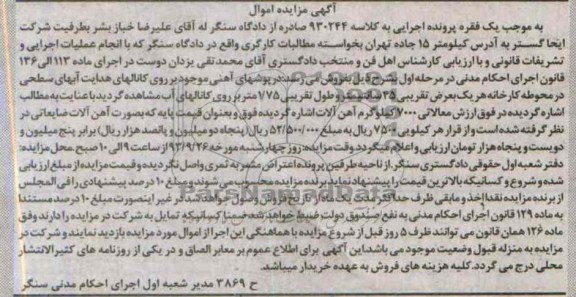 آگهی مزایده اموال
به موجب یک فقره پرونده اجرایی به کلاسه ۹۳۰۲۴۴ صادره از دادگاه سنگر له آقای علیرضا خباز بشر بطرفیت شرکت
ایخا گستر به آدرس کیلومتر ۱۵ جاده تهران بخواسته مطالبات کارگری واقع در دادگاه سنگر که با انجام عملیات اجرایی و
تشریفات قانونی و با ارزیابی کارشناس اهل فن و منتخب دادگستری آقای محمد تقی یزدان دوست در اجرای ماده ۱۱۳ الی ۱۳۶
قانون اجرای احکام مدنی در مرحله اول بشرح ذیل بفروش می رسد: درپوشهای آهنی موجود بر روی کانالهای هدایت آبهای سطحی
در محوطه کارخانه هر یک بعرض تقریبی ۳۵ سانتیمتر و طول تقریبی ۷۷۵ متر بر روی کانالهای آب مشاهده گردید با عنایت به مطالب
اشاره گردیده در فوق ارزش معالاتی ۷۰۰۰ کیلوگرم آهن آلات اشاره گردیده فوق و بعنوان قیمت پایه که بصورت آهن آلات ضایعاتی در
نظر گرفته شده است و از قرار هر کیلویی ۷۵۰۰ ریال به مبلغ ۵۲/۵۰۰/۰۰۰ ریال (پنجاه دو میلیون و پانصد هزار ریال) برابر پنج میلیون و
دویست و پنجاه هزار تومان ارزیابی و اعلام میگردد. وقت مزایده: روز چهارشنبه مورخه ۹۳/۹/۲۶ از ساعت ۹ الی ۱۰ صبح محل مزایده:
دفتر شعبه اول حقوقی دادگستری سنگر. از ناحیه طرفین پرونده اعتراض مثمر به ثمری واصل نگردیده و قیمت مزایده از مبلغ ارزیابی
شده شروع و کسانیکه بالاترین قیمت را پیشنهاد نمایند برنده مزایده محسوب می شوند و مبلغ ۱۰ درصد پیشنهادی را فی المجلس
از برنده مزایده نقدا اخذ و مابقی ظرف حداکثر مدت یک ماه از تاریخ فروش وصول خواهد شد در غیر اینصورت مبلغ ۱۰ درصد مستندا
به ماده ۱۲۹ قانون اجرای احکام مدنی به نفع صندوق دولت ضبط خواهد شد ضمنا کسانیکه تمایل به شرکت در مزایده را دارند وفق
ماده ۱۲۶ همان قانون می توانند ظرف ۵ روز قبل از شروع مزایده با هماهنگی این اجرا از اموال مورد مزایده بازدید نمایند و شرکت در
مزایده به منزله قبول وضعیت موجود می باشد. این آگهی برای اطلاع عموم بر معابر الصاق و در یکی از روزنامه های کثیرالانتشار
محلی درج می گردد. کلیه هزینه های فروش به عهده خریدار میباشد.
ح ۳۸۶۹ مدیر شعبه اول اجرای احکام مدنی سنگر